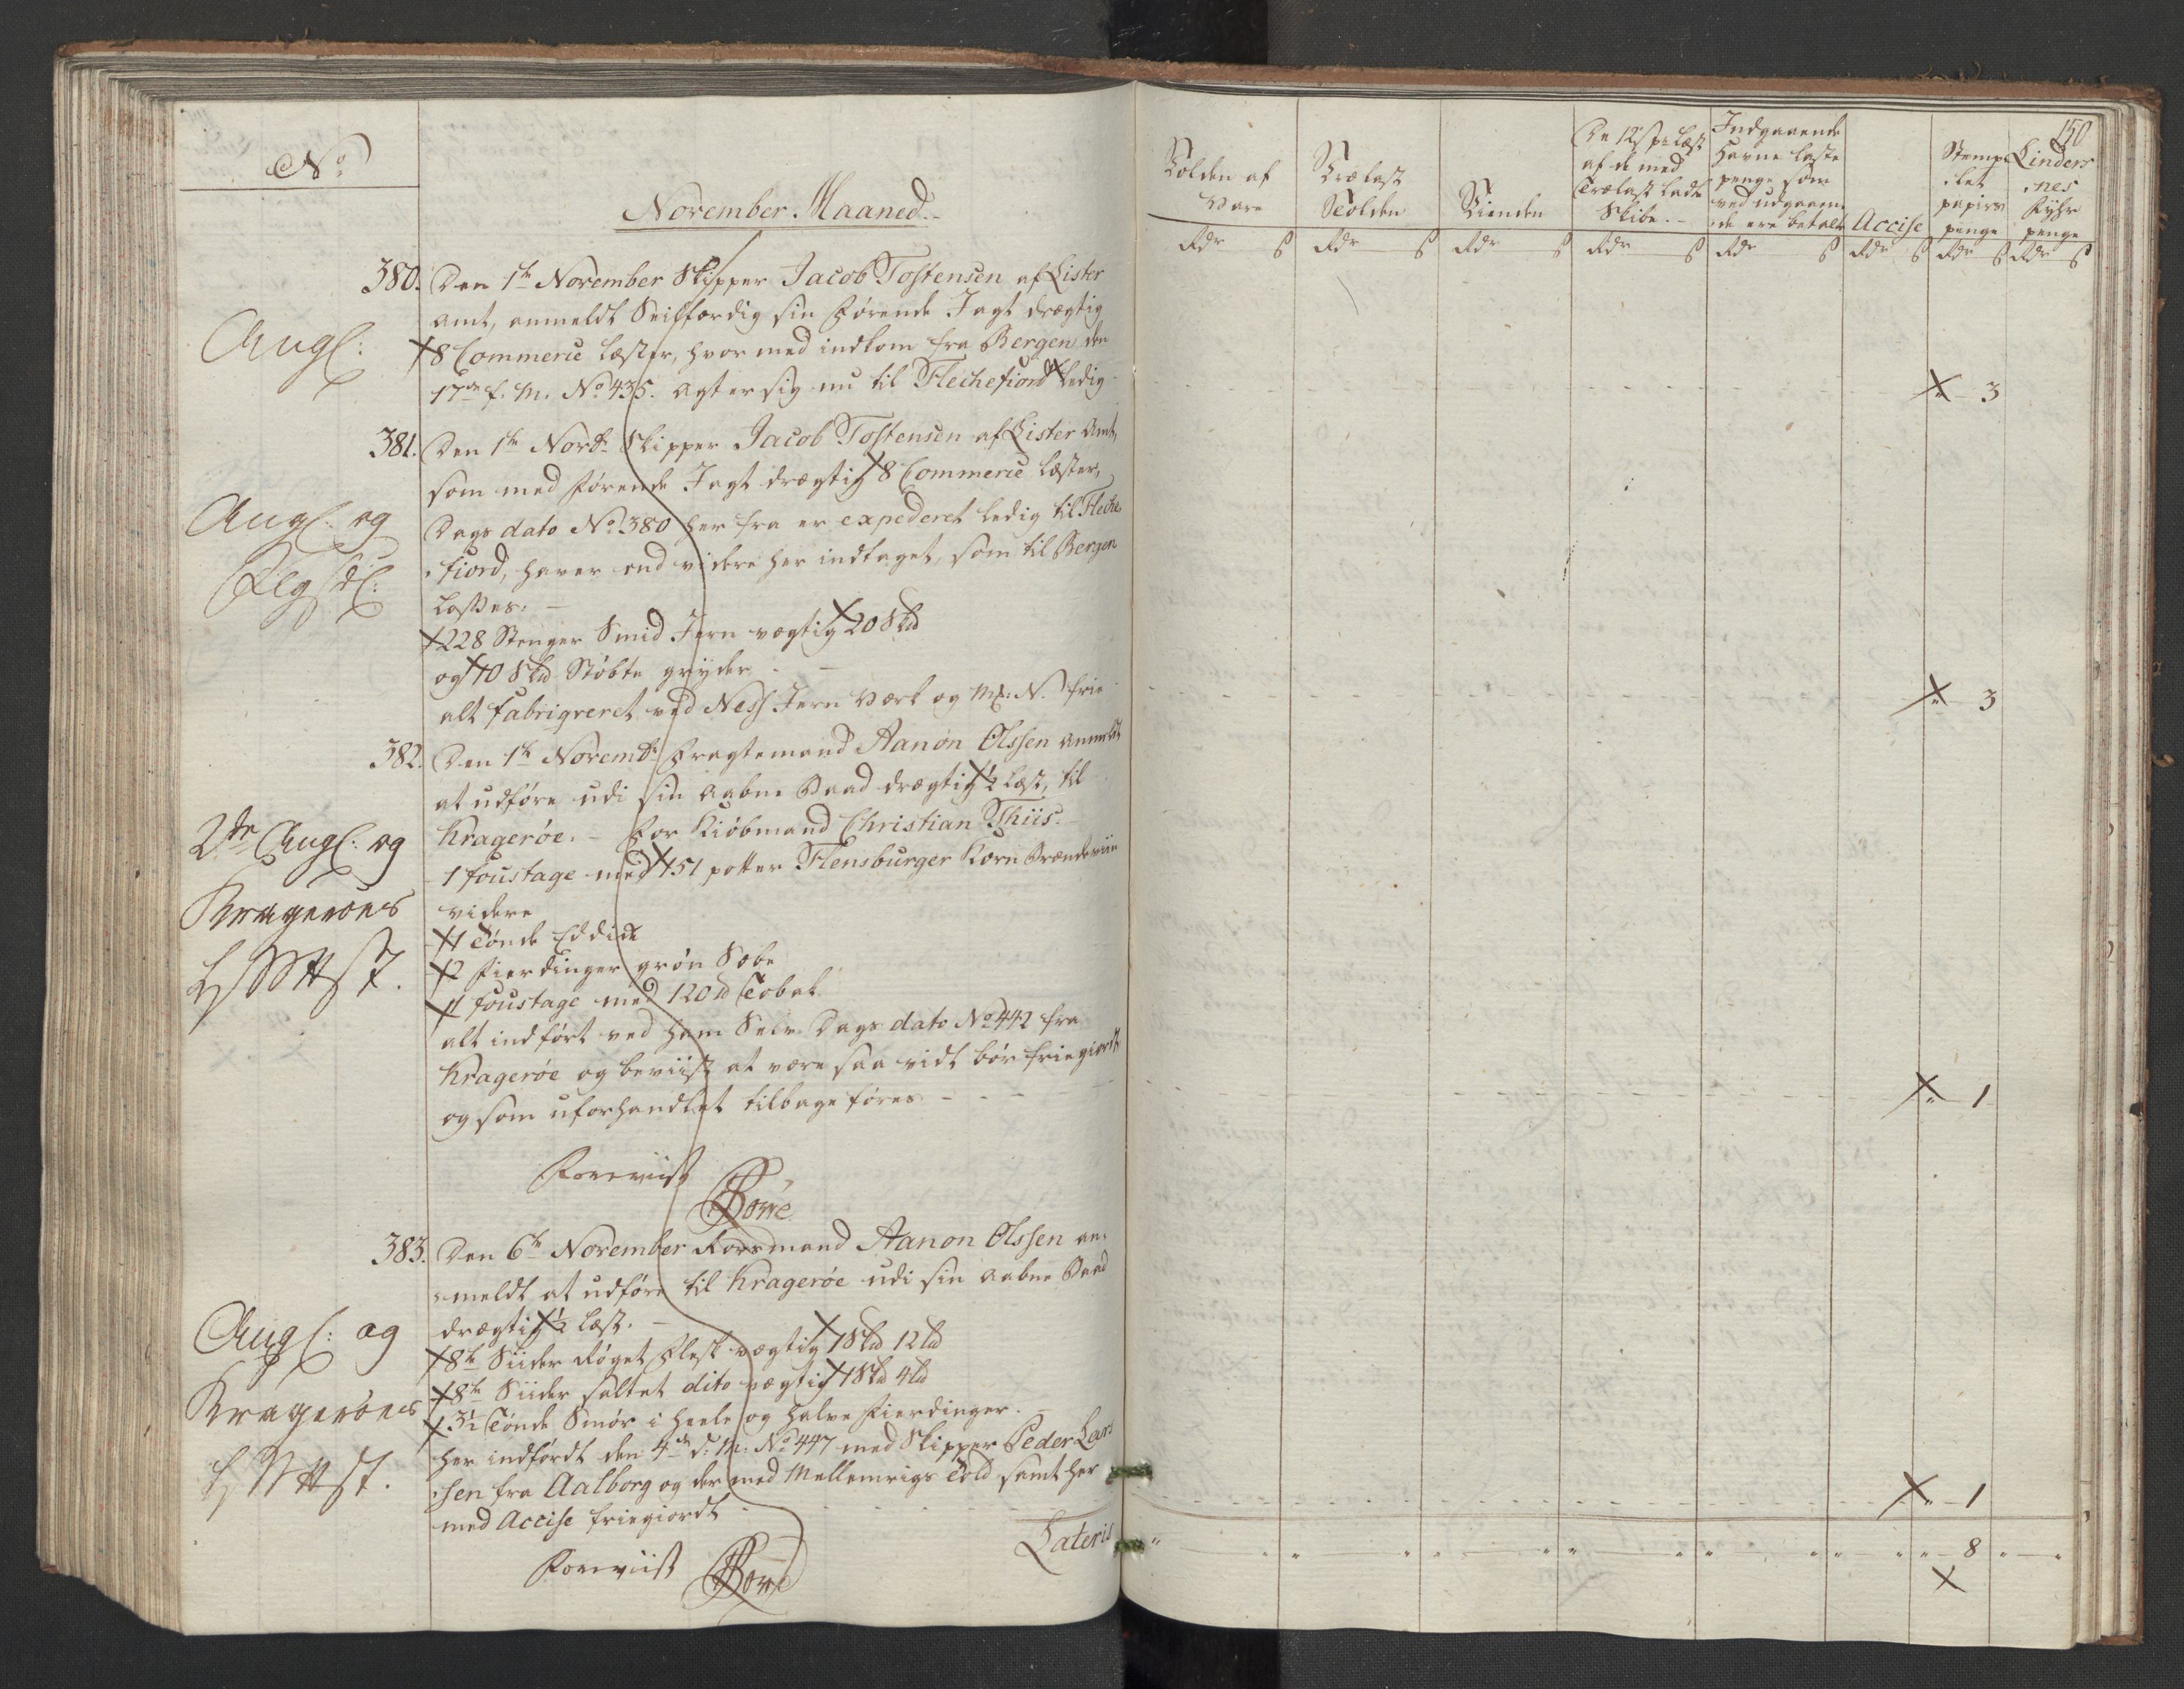 No
November Maaned.
380. Den 1te November Skipper Jacob Tostensen af Lister
amt, anmeldt Seilfærdig sin førende Jagt drægtig
Angl: 8 Commerce Læster, hvor med indkom fra Bergen den
17de f. M. No 435. agter sig nu til Flechefiord ledig
381. Den 1te Novbr Skipper Jacob Tostensen af Lister Amt,
som med førende Jagt drægtig 8 Commerce Læster,
Angl: og
Dags dato No 380 her fra er expederet ledig til Fleche-
fiord, haver end videre her indtaget, som til Bergen
losses.
228 Stænger Smid Jern vægtig 20 Skd
og 10 Skd Støbte gryder
alt fabriqveret ved Ness Jern Værk og frie
382. Den 1te Novembr Fragtemand Aanon Olssen anmeldt
at udføre udi sin aabne Baad drægtig ½ Læst, til
2de Angl: og
Kragerøe. - For Kiøbmand Christian Thiis.
1 foustage med 151 potter Flensburger Korn Brændeviin
Kragerøes
videre
1 Tønde Eddike
2 Fierdinger grøn Sæbe
1 foustage med 120 lb Tobak
alt indført ved ham Selv Dags dato No 442 fra
Kragerøe og beviist at være saa vidt bør friegiordt
og som uforhandlet tilbage føres
Foreviist
383. Den 6te November Rorsmand Aanon Olssen an-
meldt at udføre til Kragerøe udi sin aabne Baad
Angl: og
drægtig ½ Læst.
8te Siider Røget Flesk vægtig 1 Skd 12 ld
8te Siider saltet dito vægtig 1 Skd 4 ld
Kragerøes
3½ Tønde Smør i heele og halve Fierdinger.
her indført den 4de d: M: No 447 med Skipper Peder Lar-
sen fra Aalborg og der med Mellemrigs Told samt her
med Accise friegiordt
Lateris
Foreviist
150
Tolden af Vare
Trælast Tolden
Tienden
De 12 s pr Læst af de med Trælast ladte Skibe.
Indgaaende Havne Laste penge som ved udgaaende ere betalt
Accise
Stemplet papirs penge
Lindersnes Fyhr penge
Rdr s Rdr s Rdr s Rdr s Rdr s Rdr s Rdr s Rdr s
" 3
" 3
" 1
" 1
" " " " " " " " " " " " " 8 " "